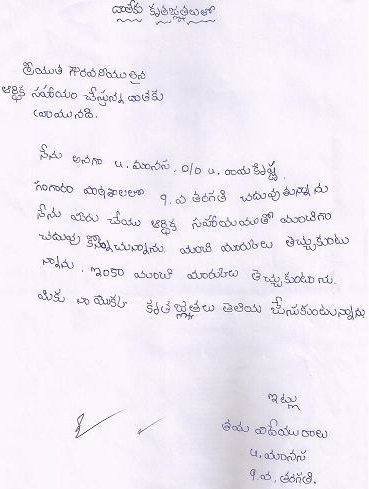 దాతకు కృతజ్ఞతలతో
శ్రీయుత గౌరవనీయులైన
ఆర్థిక సహాయం చేస్తున్న దాతకు
వ్రాయునది.
నేను అనగా u. మానస. D/o u. జయకృష్ణ.
9. వ తరగతి చదువుతున్నాను
నేను మీరు చేయు ఆర్థిక సహాయముతో మంచిగా
చదువు కొనుచున్నాను. మంచి మార్కులు తెచ్చుకుంటు
న్నాను. ఇంకా మంచి మార్కులు తెచ్చుకుంటాను.
మీకు నా యొక్క కృతజ్ఞతలు తెలియ చేసుకుంటున్నాను
ఇట్లు
తమ విధేయురాలు
u. మానస
9. వ. తరగతి.